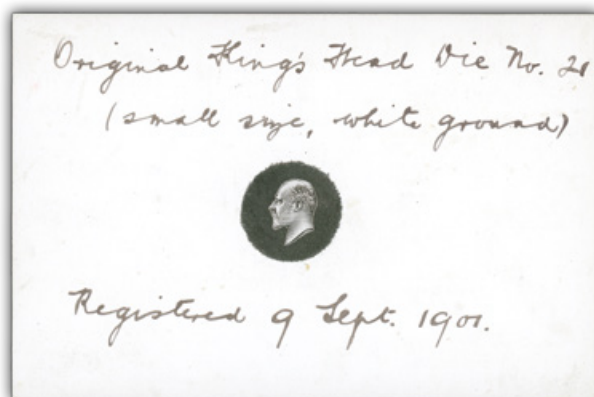 Original King's Head Die No. 21
(small size, white ground)
Registered 9 Sept. 1901.